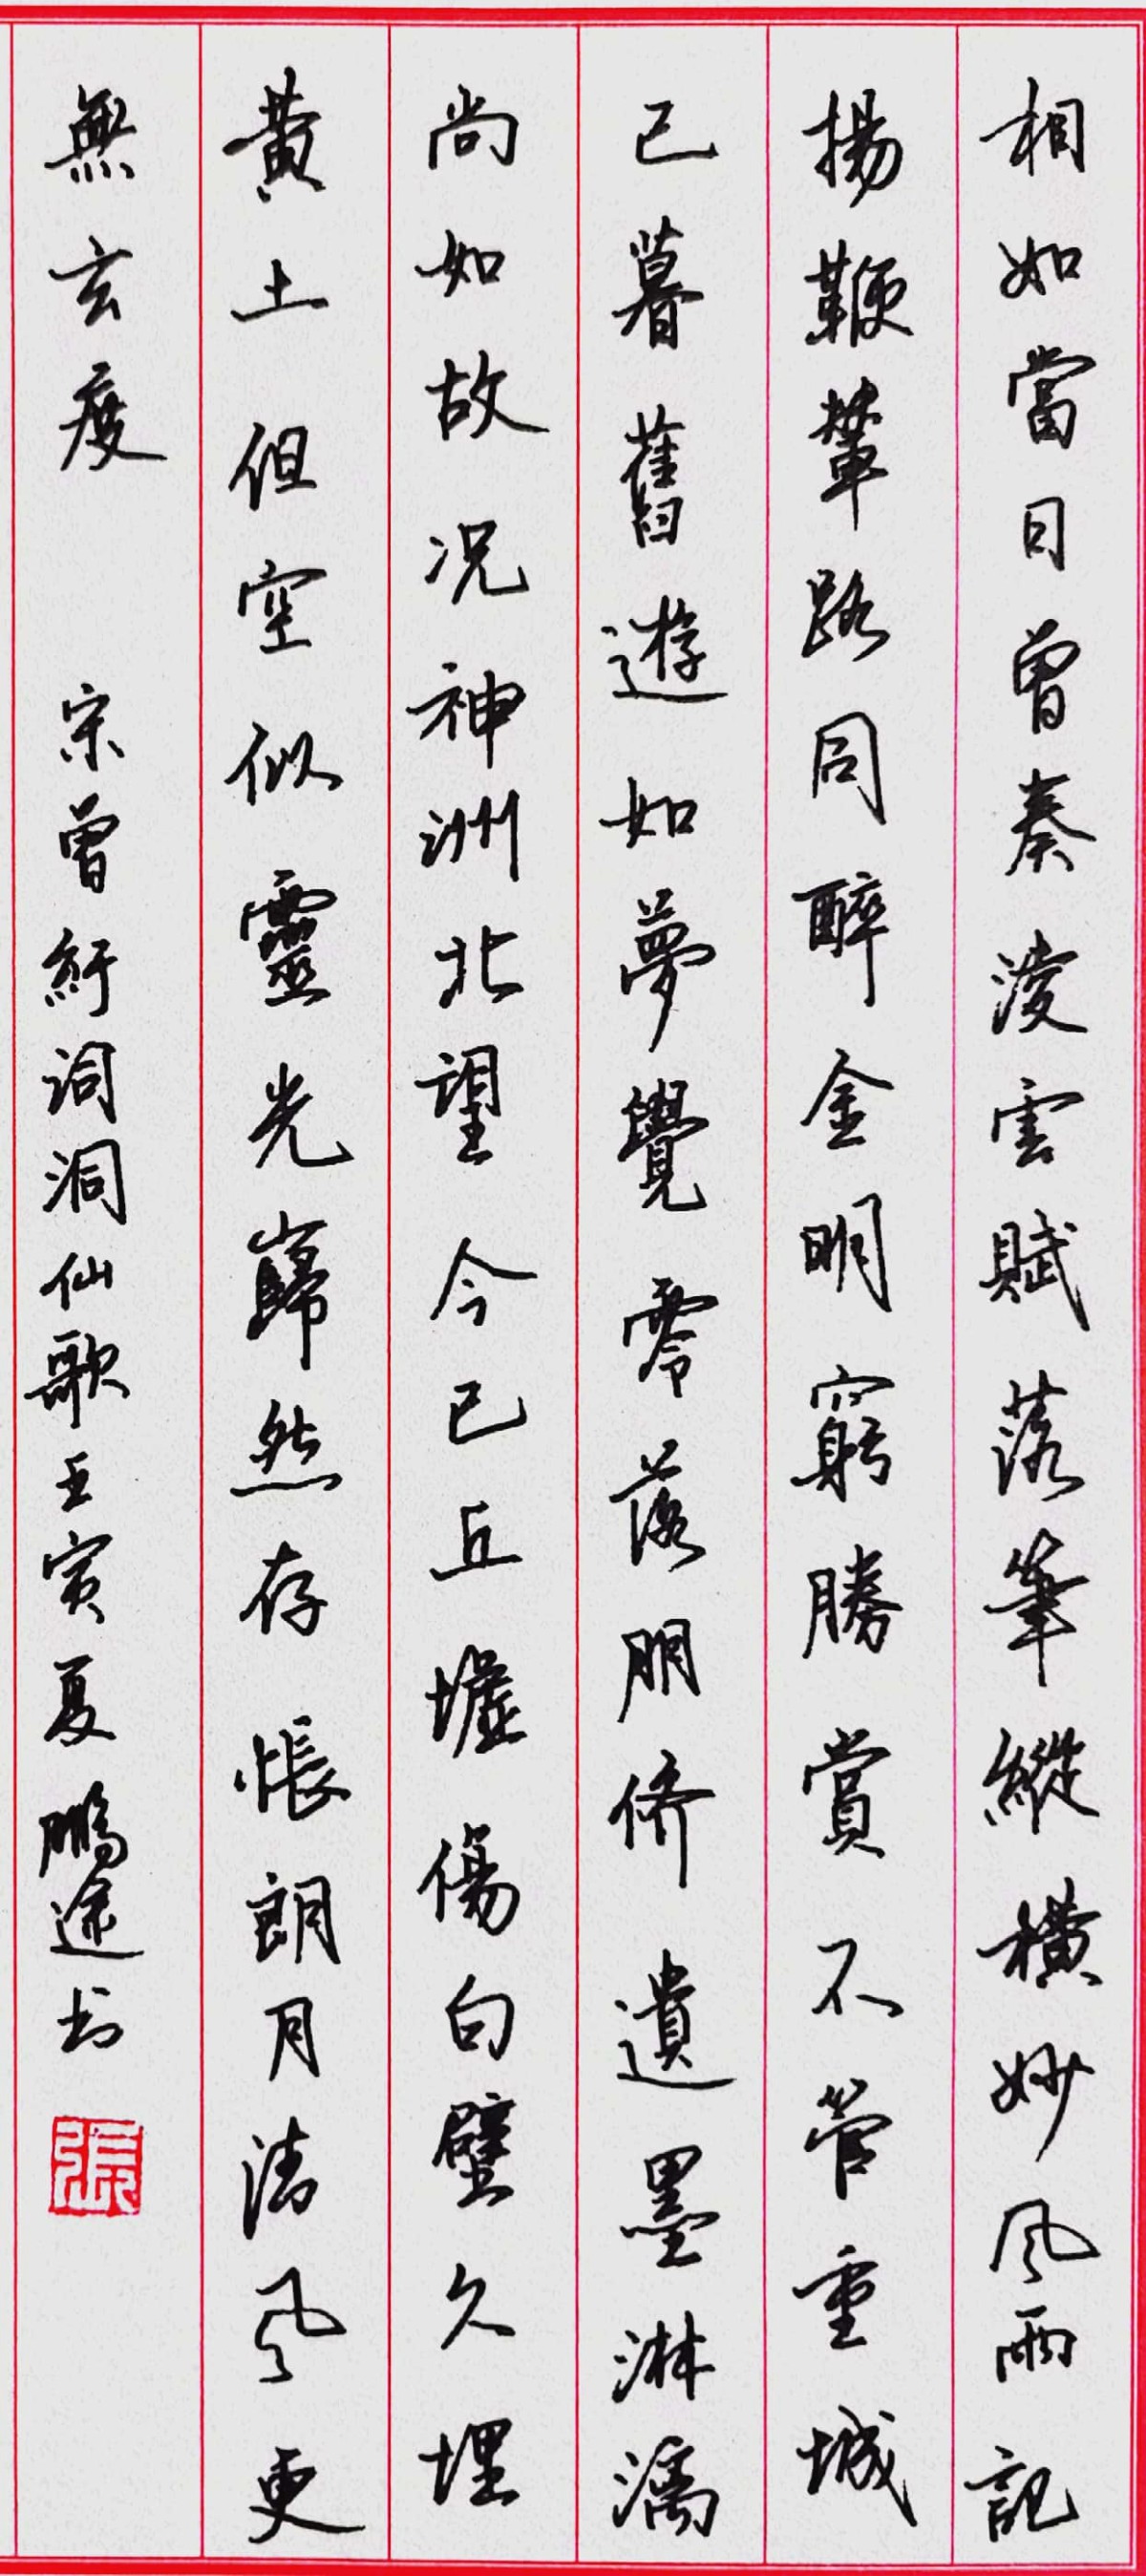 相如當日曾奏淩雲賦落筆縱橫妙風雨記
揚鞭輦路同醉金明窮勝賞不管重城
已暮舊遊如夢覺零落朋儕遺墨淋漓
尚如故况神洲北望今已丘墟傷白璧久埋
黃土但空似靈光巋然存悵朗月清風更
無玄度
宋曾紆词洞仙歌壬寅夏鵬途书
張